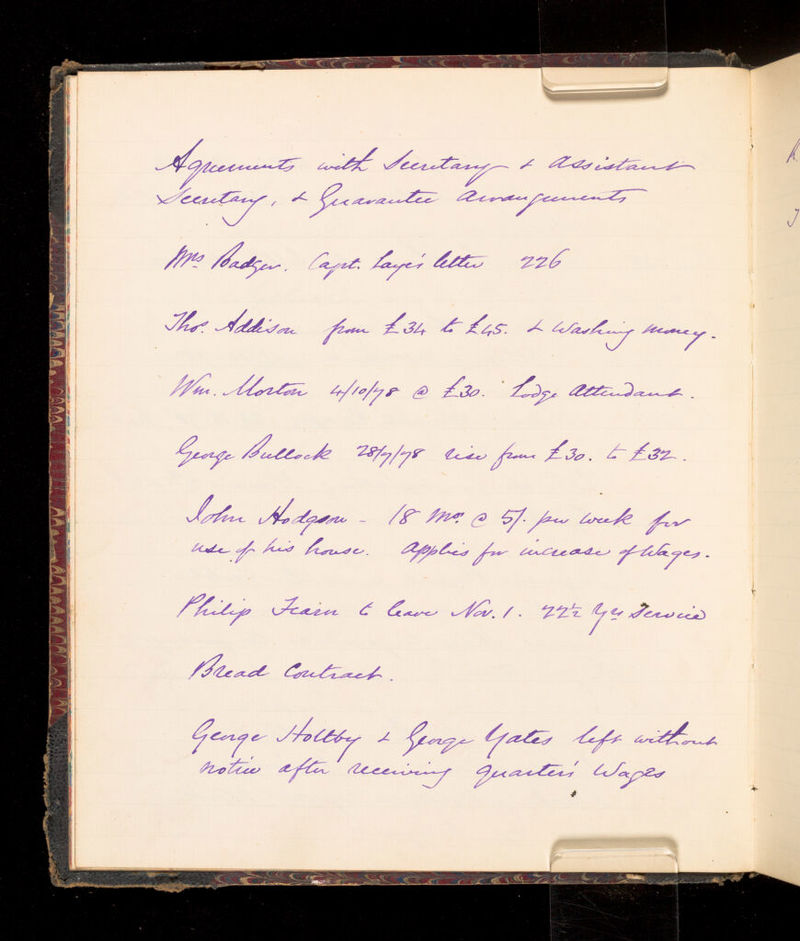 Agreements with Secretary & Assistant
Secretary, & Guarantee Arrangements
Mrs Badger. Capt. Laye's letter 226
Thos. Addison from £34 to £45. & Washing money.
Wm. Morton 4/10/78 @ £30. Lodge Attendant.
George Bullock 28/9/78 rise from £30. to £32.
John Hodgson - 18 Mos. @ 5/. per week for
use of his house. Applies for increase of Wages.
Philip Fearn to leave Nov. 1. 22½ Yrs Service
Bread Contract.
George Holtby & George Yates left without
notice after receiving quarter's Wages